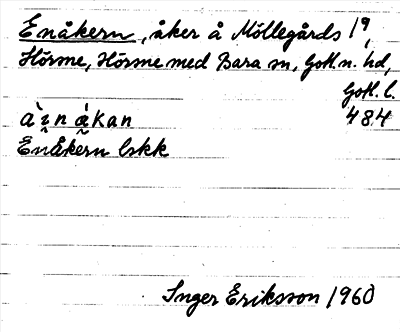 Enåkern, åker å Möllegårds 1⁹,
Hörsne, Hörsne med Bara sn, Gotl. n. hd,
Gotl. l.
àɪn ákan 484
EnÅkern lskk
Inger Eriksson 1960